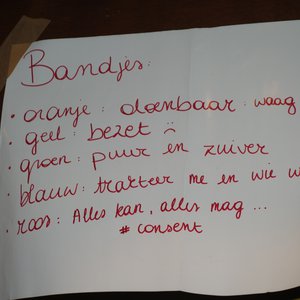 Bandjes:
• oranje : doenbaar : waag
• geel : bezet ☹
• groen : puur en zuiver
• blauw : trakteer me en wie w
• roos : Alles kan, alles mag ...
# consent